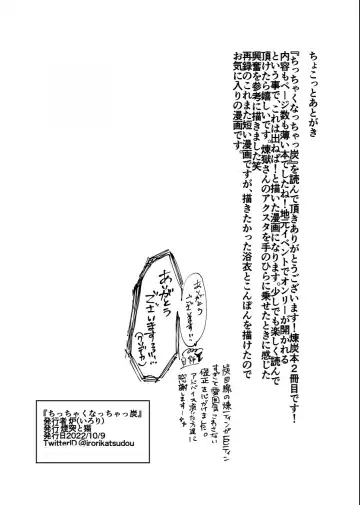 ちょこっとあとがき
『ちっちゃくなっちゃっ炭』を読んで頂きありがとうございます！煉炭本2冊目です！
内容もページ数も薄い本でしたね！地元イベントでオンリーが開かれる
という事で、これは出ねば！と描いた漫画になります。少しでも楽しく読んで
頂けたら嬉しいです。煉獄さんのアクスタを手のひらに乗せたときに感じた
興奮を参考に描きました笑
再録のこれまた短い漫画ですが、描きたかった浴衣とこんぽんを描けたので
お気に入りの漫画です。
ありがとう
ございます!!
ありがとう
ございますー!!
修正を心がけました。
アドバイス頂いた方達に
感謝しますー
『ちっちゃくなっちゃっ炭』
発行者 炉(いろり)
発行 煙突と猫
発行日2022/10/9
TwitterID @irorikatsudou